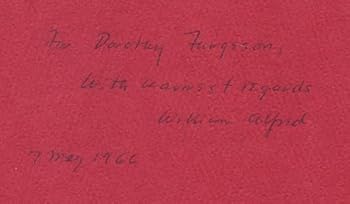 For Dorothy Furgsson,
With warmest regards
William Alfred
7 May 1966